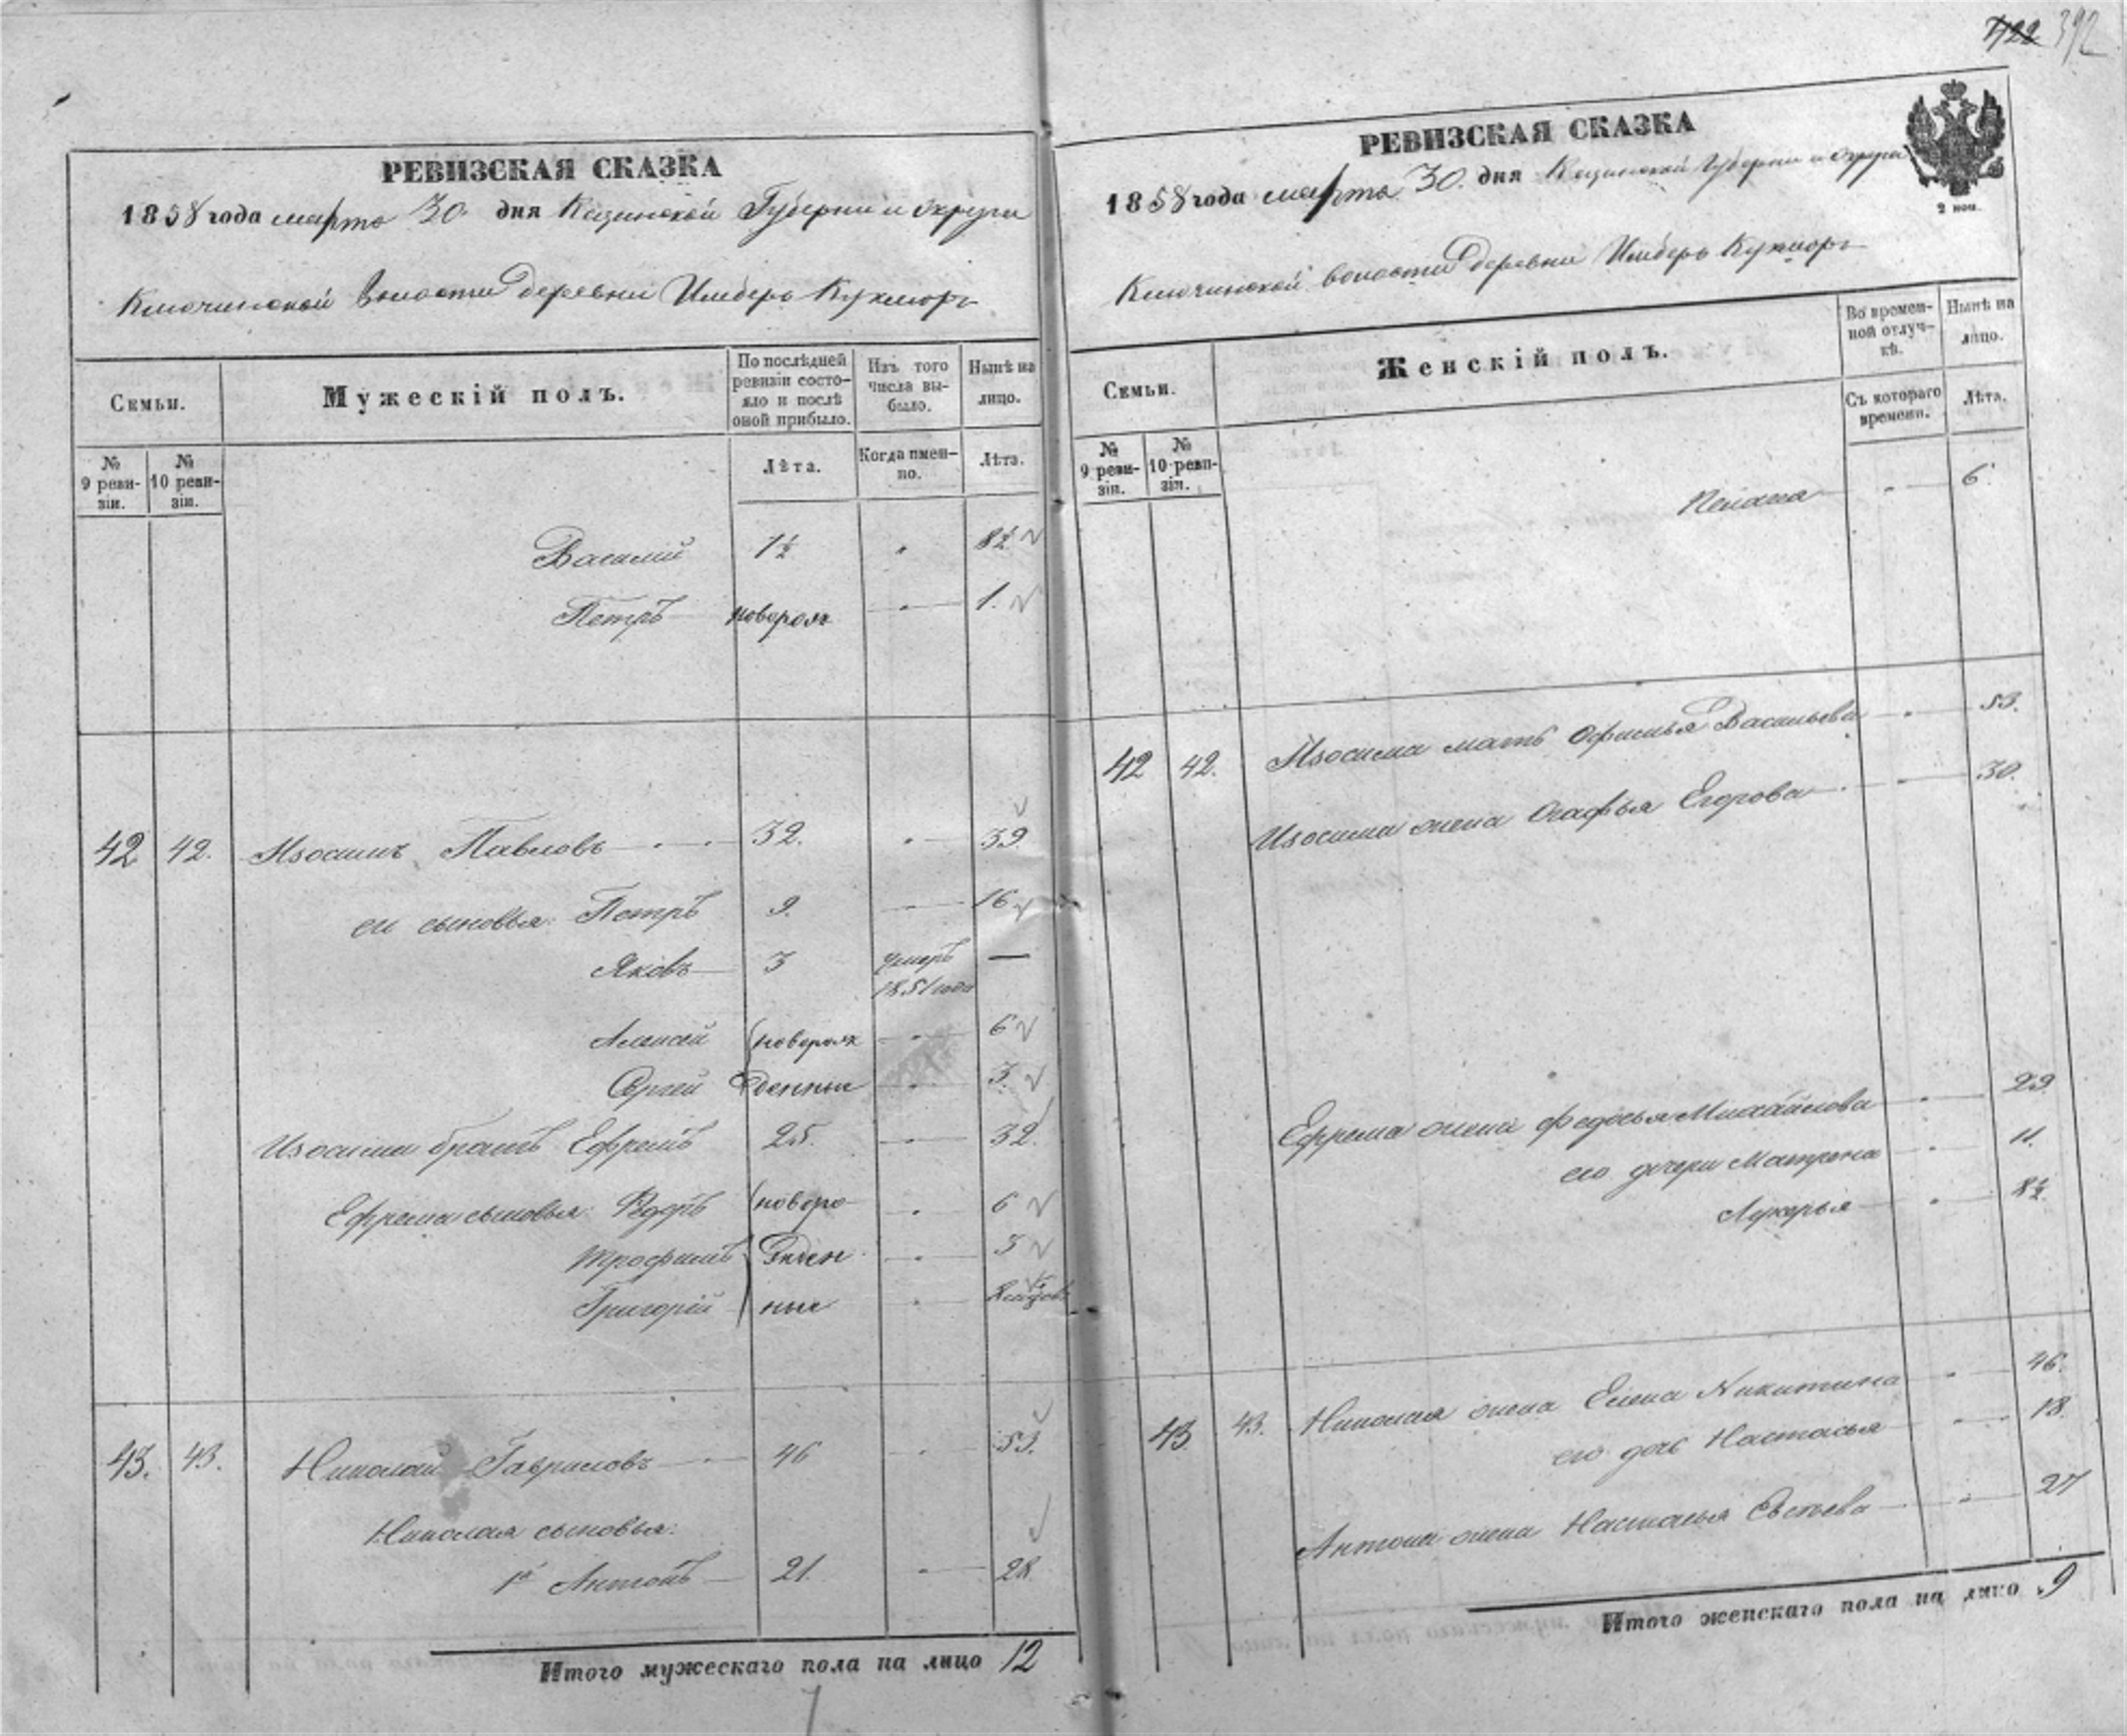 422 392
РЕВИЗСКАЯ СКАЗКА
1858 года марта 30 дня Казанской Губернии и округи
Ключинской волости деревни Имберь Кукморъ
Семьи.
Мужескій полъ.
По послѣдней ревизіи состояло и послѣ оной прибыло.
Изъ того числа выбыло.
Нынѣ на лицо.
№ 9 ревизіи.
№ 10 ревизіи.
Лѣта.
Когда именно.
Лѣта.
Василій 1½ " 8½
Петръ новорож " 1.
42 42. Изосимъ Павловъ 32. " 39
его сыновья: Петръ 9. " 16
Яковъ 3 умеръ 1851 года —
Алексей новорож " 6
Сергей денныи " 3.
Изосима братъ Ефремъ 25. " 32.
Ефрема сыновья: Федоръ новоро " 6
Трофимъ жден " 3
Григорій ные "
43. 43. Николай Гавриловъ 46 " 53.
Николая сыновья:
1й Антонъ 21. " 28
Итого мужескаго пола на лицо 12
РЕВИЗСКАЯ СКАЗКА
1858 года марта 30. дня Казанской Губернии и округи
2 коп.
Ключинской волости деревни Имберь Кукморъ
Семьи.
Женскій полъ.
Во временной отлучкѣ.
Нынѣ на лицо.
№ 9 ревизіи.
№ 10 ревизіи.
Съ котораго времени.
Лѣта.
" 6
42 42. Изосима мать Офимья Васильева " 53.
Изосима жена Огафья Егорова " 30.
Ефрема жена Федосья Михайлова " 29
его дочери Матрена " 11.
Лукерья " 8½
43 43. Николая жена Елена Никитина " 46.
его дочь Настасья " 18.
Антона жена Настасья " 27
Итого женскаго пола на лицо 9